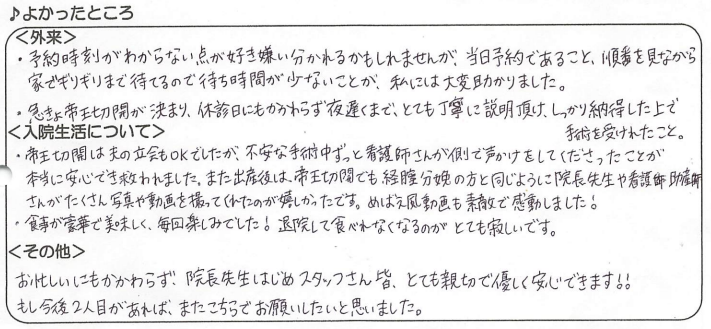 ♪よかったところ
<外来>
・予約時刻がわからない点が好き嫌い分かれるかもしれませんが、当日予約であること、順番を見ながら
家でギリギリまで待てるので待ち時間が少ないことが、私には大変助かりました。
・急きょ帝王切開が決まり、休診日にもかかわらず夜遅くまで、とても丁寧に説明頂け、しっかり納得した上で
手術を受けれたこと。
<入院生活について>
・帝王切開は夫の立会もOKでしたが、不安な手術中ずっと看護師さんが側で声かけをしてくださったことが
本当に安心でき救われました。また出産後は、帝王切開でも経膣分娩の方と同じように院長先生や看護師助産師
さんがたくさん写真や動画を撮ってくれたのが嬉しかったです。めばえ風動画も素敵で感動しました!
・食事が豪華で美味しく、毎回楽しみでした!退院して食べれなくなるのがとても寂しいです。
<その他>
お忙しいにもかかわらず、院長先生はじめスタッフさん皆、とても親切で優しく安心できます!!
もし今後2人目があれば、またこちらでお願いしたいと思いました。